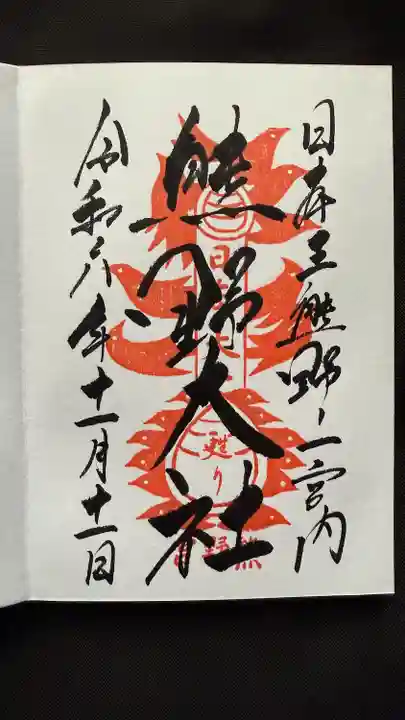 日本三熊野ノ一宮内
熊野大社
令和六年十一月十一日
日
甦り